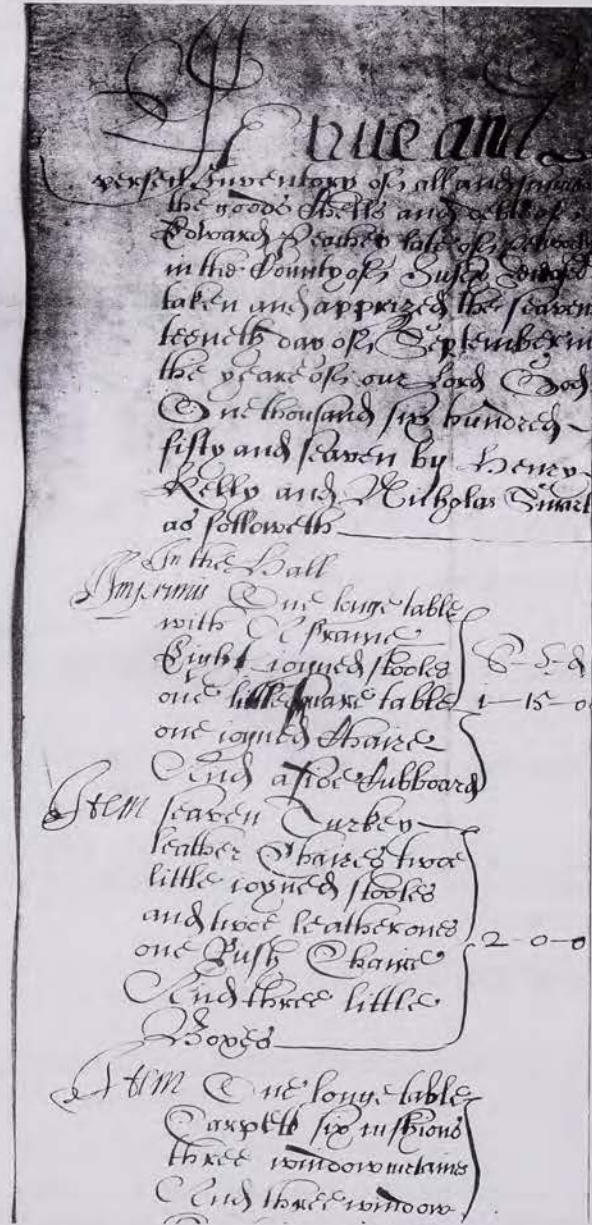 A true and
perfect Inventory of all and
the goods Chells and debts of
Edward Peachey late of
in the County of Sussex
taken and apprized the seaven
teeneth day of September in
the yeare of our Lord God
One thousand six hundred
fifty and seaven by Henry
Kelly and Nicholas Smart
as followeth
In the Hall
Imprimis One longe table
with A frame
Eight ioyned stooles
£ - s - d
one little square table
1 - 15 - 0
one ioyned Chaire
And a side Cubboard
Item seaven Turkey
leather Chaires twoe
little ioyned stooles
and twoe leather ones
2 - 0 - 0
one Rush Chaire
And three little
Boxes
Item One longe table
Carpett six cushions
three window curtains
And three window